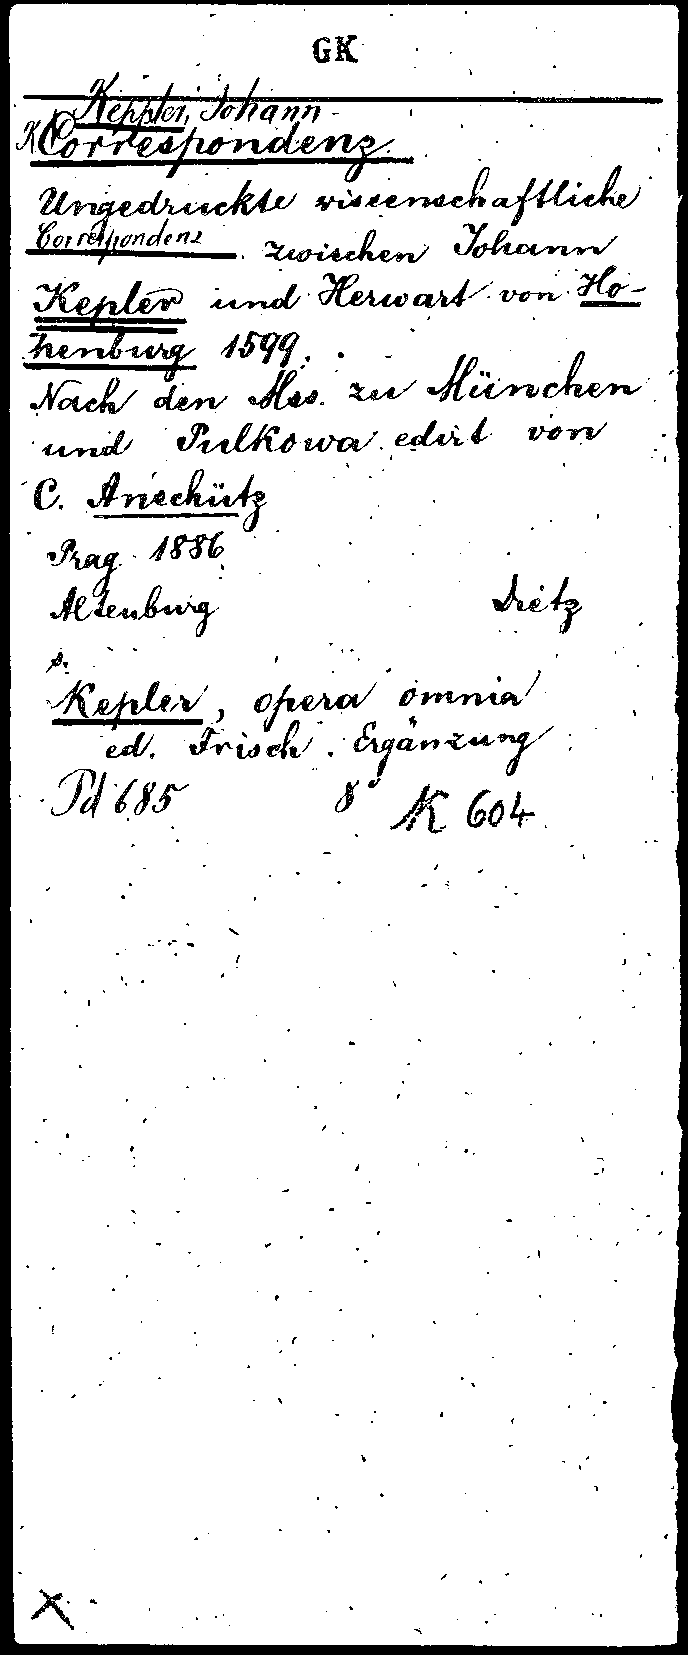 GK
Keppler, Johann
K Correspondenz.
Ungedruckte wissenschaftliche
Correspondenz zwischen Johann
Kepler und Herwart von Ho-
henburg 1599.
Nach den Mss. zu München
und Pulkowa edirt von
C. Anschütz
Prag 1886
Altenburg Dietz
s.
Kepler, opera omnia
ed. Frisch. Ergänzung
Pd 685 8° K 604